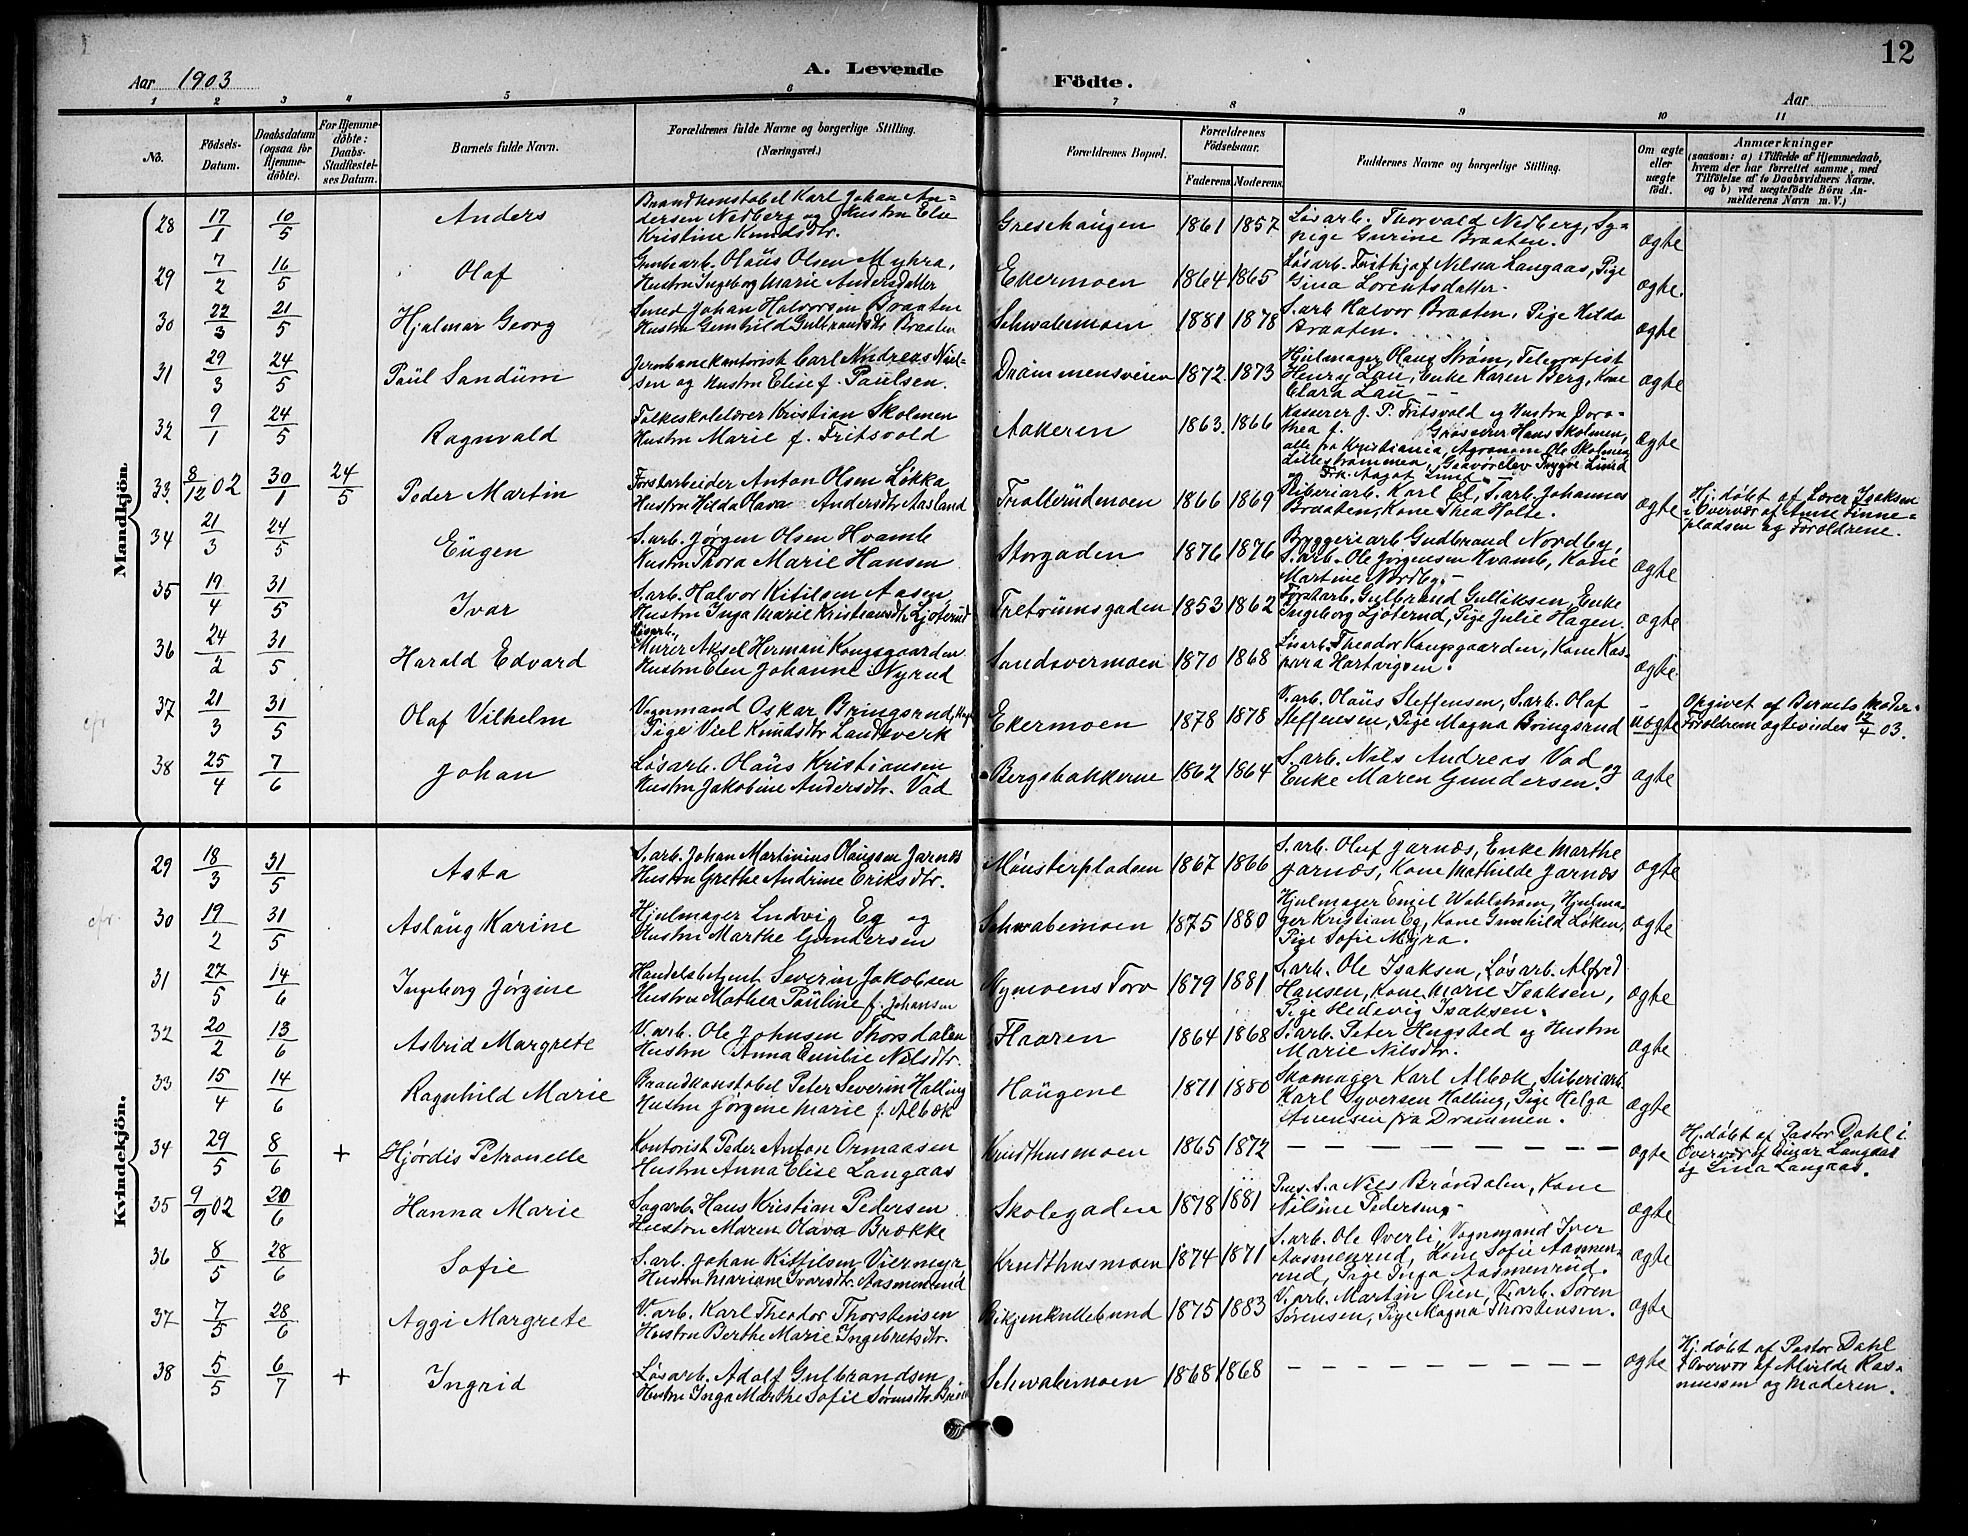 12
Aar 1903
A. Levende
Födte.
Aar
1 2 3 4 5 6 7 8 9 10 11
No.
Födsels-Datum.
Daabsdatum (ogsaa for Hjemme-döbte).
For Hjemme-döbte: Daabs-Stadfæstel-ses Datum.
Barnets fulde Navn.
Forældrenes fulde Navne og borgerlige Stilling. (Næringsvei.)
Forældrenes Bopæl.
Forældrenes Födselsaar.
Faderens. Moderens.
Faddernes Navne og borgerlige Stilling.
Om ægte eller uægte födt.
Anmærkninger
(saasom: a) i Tilfælde af Hjemmedaab,
hvem der har forrettet samme, med
Tilföielse af to Daabsvidners Navne,
og b) ved uægtefödte Börn An-
melderens Navn m. V.)
Mandkjön.
28 17/1 10/5 Anders
Brandkonstabel Karl Johan An=
dersen Nedberg og Hustru Else
Kristine Knudsdtr.
Greschaugen 1861 1857
Løsarb. Thorvald Nedberg, Sy=
pige Gurine Braaten.
ægte
29 7/2 16/5 Olaf
Grubearb. Olaus Olsen Myhra,
Hustru Ingeborg Marie Andersdatter
Ekermoen 1864 1865
Løsarb. Frithjof Nilsen Langaas, Pige
Gina Lorentsdatter.
ægte.
30 22/3 21/5 Hjalmar Georg
Smed Johan Halvorsen Braaten
Hustru Gunhild Gulbransdtr Braaten
Schwabemoen 1881 1878
S.arb. Halvor Braaten, Pige Hilda
Braaten.
ægte
31 29/3 24/5 Paul Sandum
Jernbanekontorist Carl Andreas Niel-
sen og Hustru Elise f. Paulsen.
Drammensveien 1872. 1873
Hjulmager Olaus Strøm, Telegrafist
Henry Lau, Enke Karen Berg, Kone
Clara Lau
ægte
32 9/1 24/5 Ragnvald
Folkeskolelærer Kristian Skolmen
Hustru Marie f. Fritsvold
Aakeren 1863. 1866
Kasserer J. P. Fritsvold og Hustru Doro-
thea f. Grosserer Hans Skolmen,
alle fra Kristiania, Agronom Ole Skolmen
Lillestrømmen, Trygve Lund
og Frk. Aagot Lund
ægte
33. 8/12 02 30/1 24/5 Peder Martin
Forstarbeider Anton Olsen Løkka
Hustru Hilda Olava Andersdtr Aasland
Trollerudmoen 1866 1869
Sliberiarb. Karl Ei, S.arb. Johannes
Braaten, Kone Thea Holte.
ægte
Hj. døbt af Lærer Isaksen
i Overvær af Anne Finne=
pladsen og Forældrene.
34 21/3 24/5 Eugen
S.arb. Jørgen Olsen Hvamb
Hustru Thora Marie Hansen
Storgaden 1876 1876
Bryggeriarb Gudbrand Nordby,
S.arb. Ole Jørgensen Hvamb, Kone
Martine Nordby.
ægte
35 19/4 31/5 Ivar
S.arb. Halvor Kitilsen Aasen
Hustru Inga Marie Kristiansdtr Ljøterud
Tretrumsgaden 1853 1862
Forstarb. Gulbrand Gulliksen, Enke
Ingeborg Ljøterud, Pige Julie Hagen.
ægte
36 24/2 31/5 Harald Edvard
Løsarb.
Murer Aksel Herman Kongsgaarden
Hustru Elen Johanne Nyrud
Sandsvermoen 1870 1868
Løsarb. Theodor Kongsgaarden, Kone Kas-
para Hartvigsen.
ægte.
cfr 37 21/3 31/5 Olaf Vilhelm
Vognmand Oskar Bringsrud,
Pige Viel Knudsdtr Landsverk
Ekermoen 1878 1878
V.arb. Olaus Steffensen, S.arb. Olaf
Steffensen, Pige Magna Bringsrud
uægte
Opgivet af Barnets Moder.
Forældrene ægteviedes 12/4 03.
38 25/4 7/6 Johan
Løsarb. Olaus Kristiansen
Hustru Jakobine Andersdtr. Vad
Bergsbakkerne 1862 1864
S.arb. Nils Andreas Vad og
Enke Maren Gundersen.
ægte
Kvindekjön.
29 18/3 31/5 Asta
S.arb. Johan Martinius Olaussen Jarnæs
Hustru Grethe Andrine Eriksdtr.
Münsterpladsen 1867 1866
S.arb. Oluf Jarnæs, Enke Marthe
Jarnæs, Kone Mathilde Jarnæs
ægte
cfr. 30 19/2 31/5 Aslaug Karine
Hjulmager Ludvig Eg og
Hustru Marthe Gundersen
Schwabemoen 1875 1880
Hjulmager Emil Wahlstrøm, Hjulma-
ger Kristian Eg, Kone Gunhild Løken,
Pige Sofie Myra.
ægte
31 27/5 14/6 Ingeborg Jørgine
Handelsagent Severin Jakobsen
Hustru Mathea Pauline f. Johansen
Nymoens Torv 1879 1881
S.arb. Ole Isaksen, Løsarb. Alfred
Hansen, Kone Marie Isaksen,
Pige Hedevig Isaksen.
ægte
32 20/2 13/6 Astrid Margrete
V.arb. Ole Johnsen Thorsdalen
Hustru Anna Emilie Nilsdtr.
Flaaren 1864 1868
S.arb. Peter Hugsted og Hustru
Marie Nilsdtr.
ægte
33 15/4 14/6 Ragnhild Marie
Brandkonstabel Peter Severin Halling
Hustru Jørgine Marie f. Albæk
Haugene 1871 1880
Skomager Karl Albæk, Sliberiarb.
Karl Syversen Halling, Pige Helga
Anensen fra Drammen.
ægte
34 29/5 8/6 + Hjørdis Petronelle
Kontorist Peder Anton Ormaasen
Hustru Anna Elise Langaas
Krudthusmoen 1865 1872
— — — — — — — — — —
ægte
Hj. døbt af Pastor Dahl i
Overvær af Einar Langaas
og Lina Langaas.
35 9/9 02 20/6 Hanna Marie
Sagarb. Hans Kristian Pedersen
Hustru Maren Olava Brække
Skolegaden 1878 1881
Nils Brøndalen, Kone
Nilsine Pedersen
ægte
36 8/5 28/6 Sofie
S.arb. Johan Kittilsen Viermyr
Hustru Mariane Ivarsdtr. Aasmenrud
Krudthusmoen 1874 1871
S.arb. Ole Øverli, Vognmand Iver
Aasmenrud, Kone Sofie Aasmen-
rud, Pige Inga Aasmenrud.
ægte
37 7/5 28/6 Aggi Margrete
V.arb. Karl Theodor Thorstensen
Hustru Berthe Marie Ingebretsdtr.
Bikjenkullebund 1875 1883
V.arb. Martin Øien, V.arb. Søren
Sørensen, Pige Magna Thorstensen.
ægte
38 5/5 6/7 + Ingrid
Løsarb. Adolf Gulbrandsen
Hustru Inga Marthe Sofie Sørensdtr.
Schwabemoen 1868 1868
— — — — — — — — — —
ægte
Hj. døbt af Pastor Dahl
i Overvær af Alvilde Ras-
mussen og Moderen.